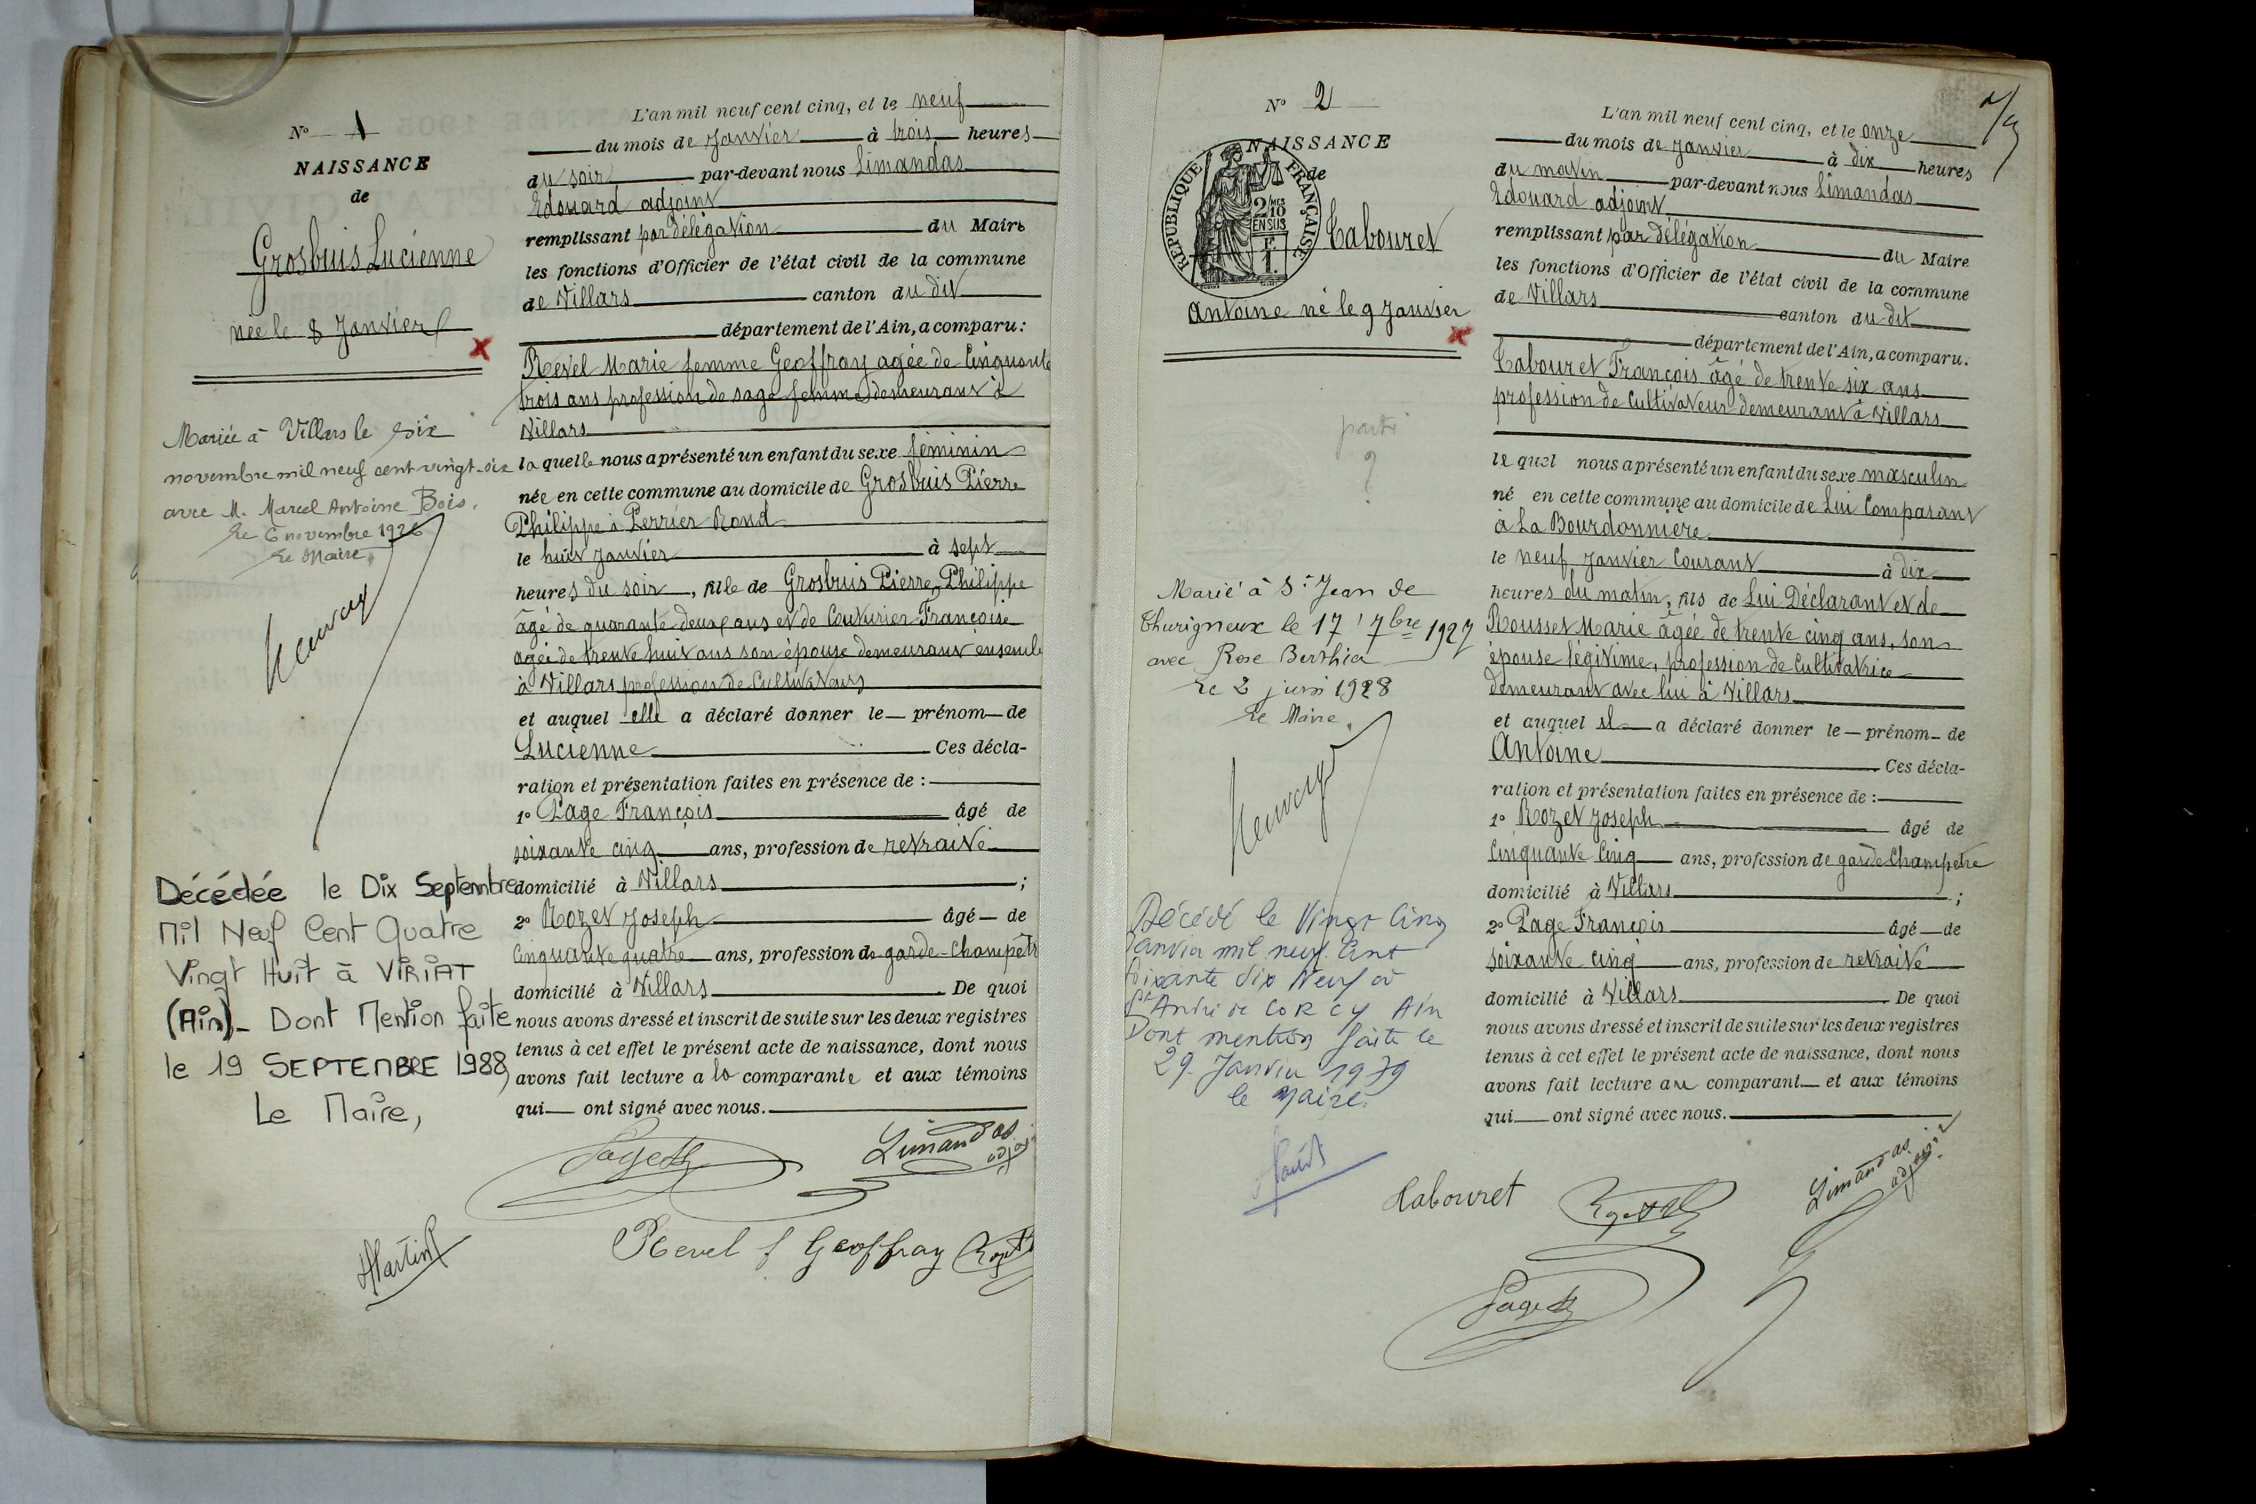 N° 1
NAISSANCE
de
Grosbuis Lucienne
née le 8 Janvier
Mariée à Villars le six
novembre mil neuf cent vingt-six
avec M. Marcel Antoine Bois.
Le 6 novembre 1926
Le Maire,
Décédée le Dix Septembre
Mil Neuf Cent Quatre
Vingt Huit à VIRIAT
(Ain)_ Dont Mention faite
le 19 SEPTEMBRE 1988
Le Maire,
Martin
L'an mil neuf cent cinq, et le neuf
du mois de Janvier à trois heures
du soir par-devant nous Limandas
Edouard adjoint
remplissant par délégation du Maire
les fonctions d'Officier de l'état civil de la commune
de Villars canton du dit
département de l'Ain, a comparu:
Revel Marie femme Geoffray agée de Cinquante
trois ans profession de sage femme demeurant à
Villars
la quelle nous a présenté un enfant du sexe féminin
née en cette commune au domicile de Grosbuis Pierre
Philippe à Perrier Rond
le huit Janvier à sept
heures du soir, fille de Grosbuis Pierre Philippe
âgé de quarante deux ans et de Couturier Françoise
agée de trente huit ans son épouse demeurant ensemble
à Villars profession de Cultivateurs
et auquel elle a déclaré donner le prénom de
Lucienne Ces décla-
ration et présentation faites en présence de :
1° Page François âgé de
soixante cinq ans, profession de retraité
domicilié à Villars ;
2° Rozet Joseph âgé de
Cinquante quatre ans, profession de garde-Champêtre
domicilié à Villars De quoi
nous avons dressé et inscrit de suite sur les deux registres
tenus à cet effet le présent acte de naissance, dont nous
avons fait lecture a la comparante et aux témoins
qui ont signé avec nous.
Limandas
adj
Revel f Geoffray
N° 2
NAISSANCE
de
REPUBLIQUE FRANÇAISE
2/10 MES
EN SUS
F.
1.
Tabouret
Antoine né le 9 Janvier
parti
?
Marié à St Jean de
Thurigneux le 17 7bre 1927
avec Rose Berthier
Le 2 juin 1928
Le Maire,
Décédé le Vingt Cinq
Janvier mil neuf Cent
Soixante dix Neuf à
St André de CORCY Ain
Dont mention faite le
29 Janvier 1979
le Maire.
L'an mil neuf cent cinq, et le onze
du mois de Janvier à dix heures
du matin par-devant nous Limandas
Edouard adjoint
remplissant par délégation du Maire
les fonctions d'Officier de l'état civil de la commune
de Villars canton du dit
département de l'Ain, a comparu.
Tabouret François âgé de trente six ans
profession de Cultivateur demeurant à Villars
le quel nous a présenté un enfant du sexe masculin
né en cette commune au domicile de Lui Comparant
à La Bourdonnière
le neuf Janvier Courant à dix
heures du matin, fils de Lui Déclarant et de
Rousset Marie âgée de trente cinq ans, son
épouse légitime, profession de Cultivatrice
demeurant avec lui à Villars
et auquel il a déclaré donner le prénom de
Antoine Ces décla-
ration et présentation faites en présence de :
1° Rozet Joseph âgé de
Cinquante Cinq ans, profession de garde Champêtre
domicilié à Villars ;
2° Page François âgé de
soixante cinq ans, profession de retraité
domicilié à Villars De quoi
nous avons dressé et inscrit de suite sur les deux registres
tenus à cet effet le présent acte de naissance, dont nous
avons fait lecture au comparant et aux témoins
qui ont signé avec nous.
Tabouret
Limandas
adjoint